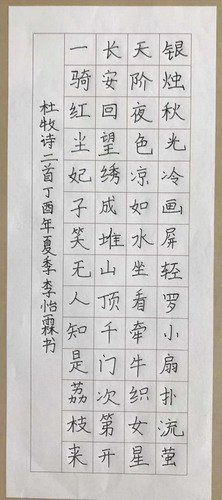 银烛秋光冷画屏轻罗小扇扑流萤
天阶夜色凉如水坐看牵牛织女星
长安回望绣成堆山顶千门次第开
一骑红尘妃子笑无人知是荔枝来
杜牧诗二首丁酉年夏季李怡霖书